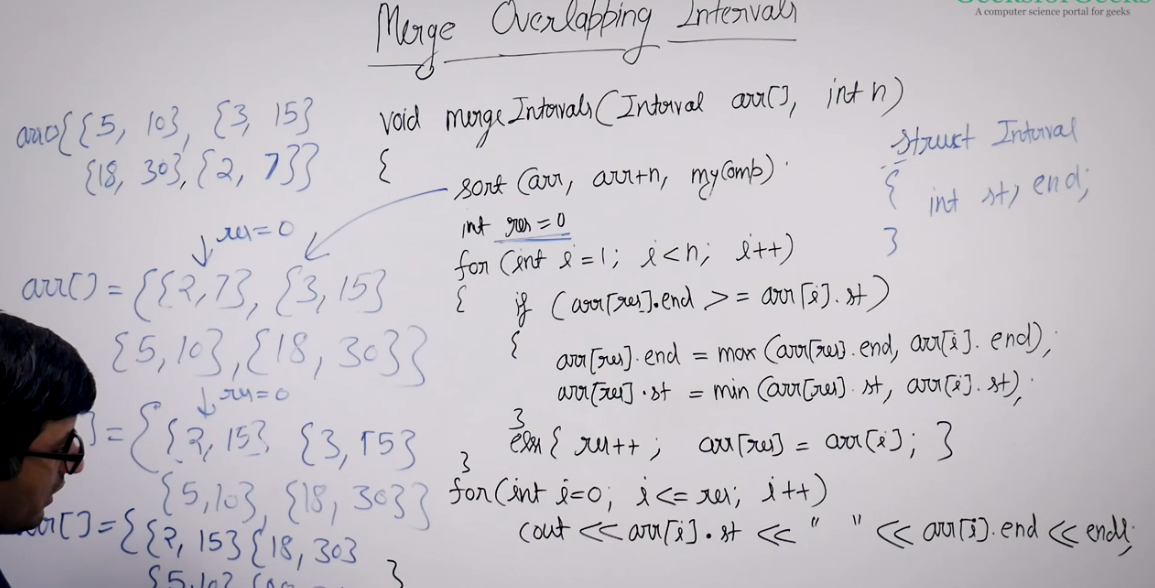 GeeksforGeeks
A computer science portal for geeks
Merge Overlapping Intervals
arr[]{{5, 10}, {3, 15}
{18, 30}, {2, 7}}
res=0
arr[] = {{2,7}, {3,15}
{5,10},{18,30}}
res=0
] = {{2,15}, {3,15}
{5,10}, {18,30}}
arr[]={{2,15}{18,30
{5,10}
}
void mergeIntervals(Interval arr[], int n)
{
sort (arr, arr+n, myComb)
int res=0
for (int i=1; i<n; i++)
{ if (arr[res].end >= arr[i].st)
{
arr[res].end = max(arr[res].end, arr[i].end);
arr[res].st = min(arr[res].st, arr[i].st);
}
else{ res++; arr[res] = arr[i]; }
}
for(int i=0; i<=res; i++)
cout << arr[i].st << " " << arr[i].end << endl;
struct Interval
{
int st, end;
}